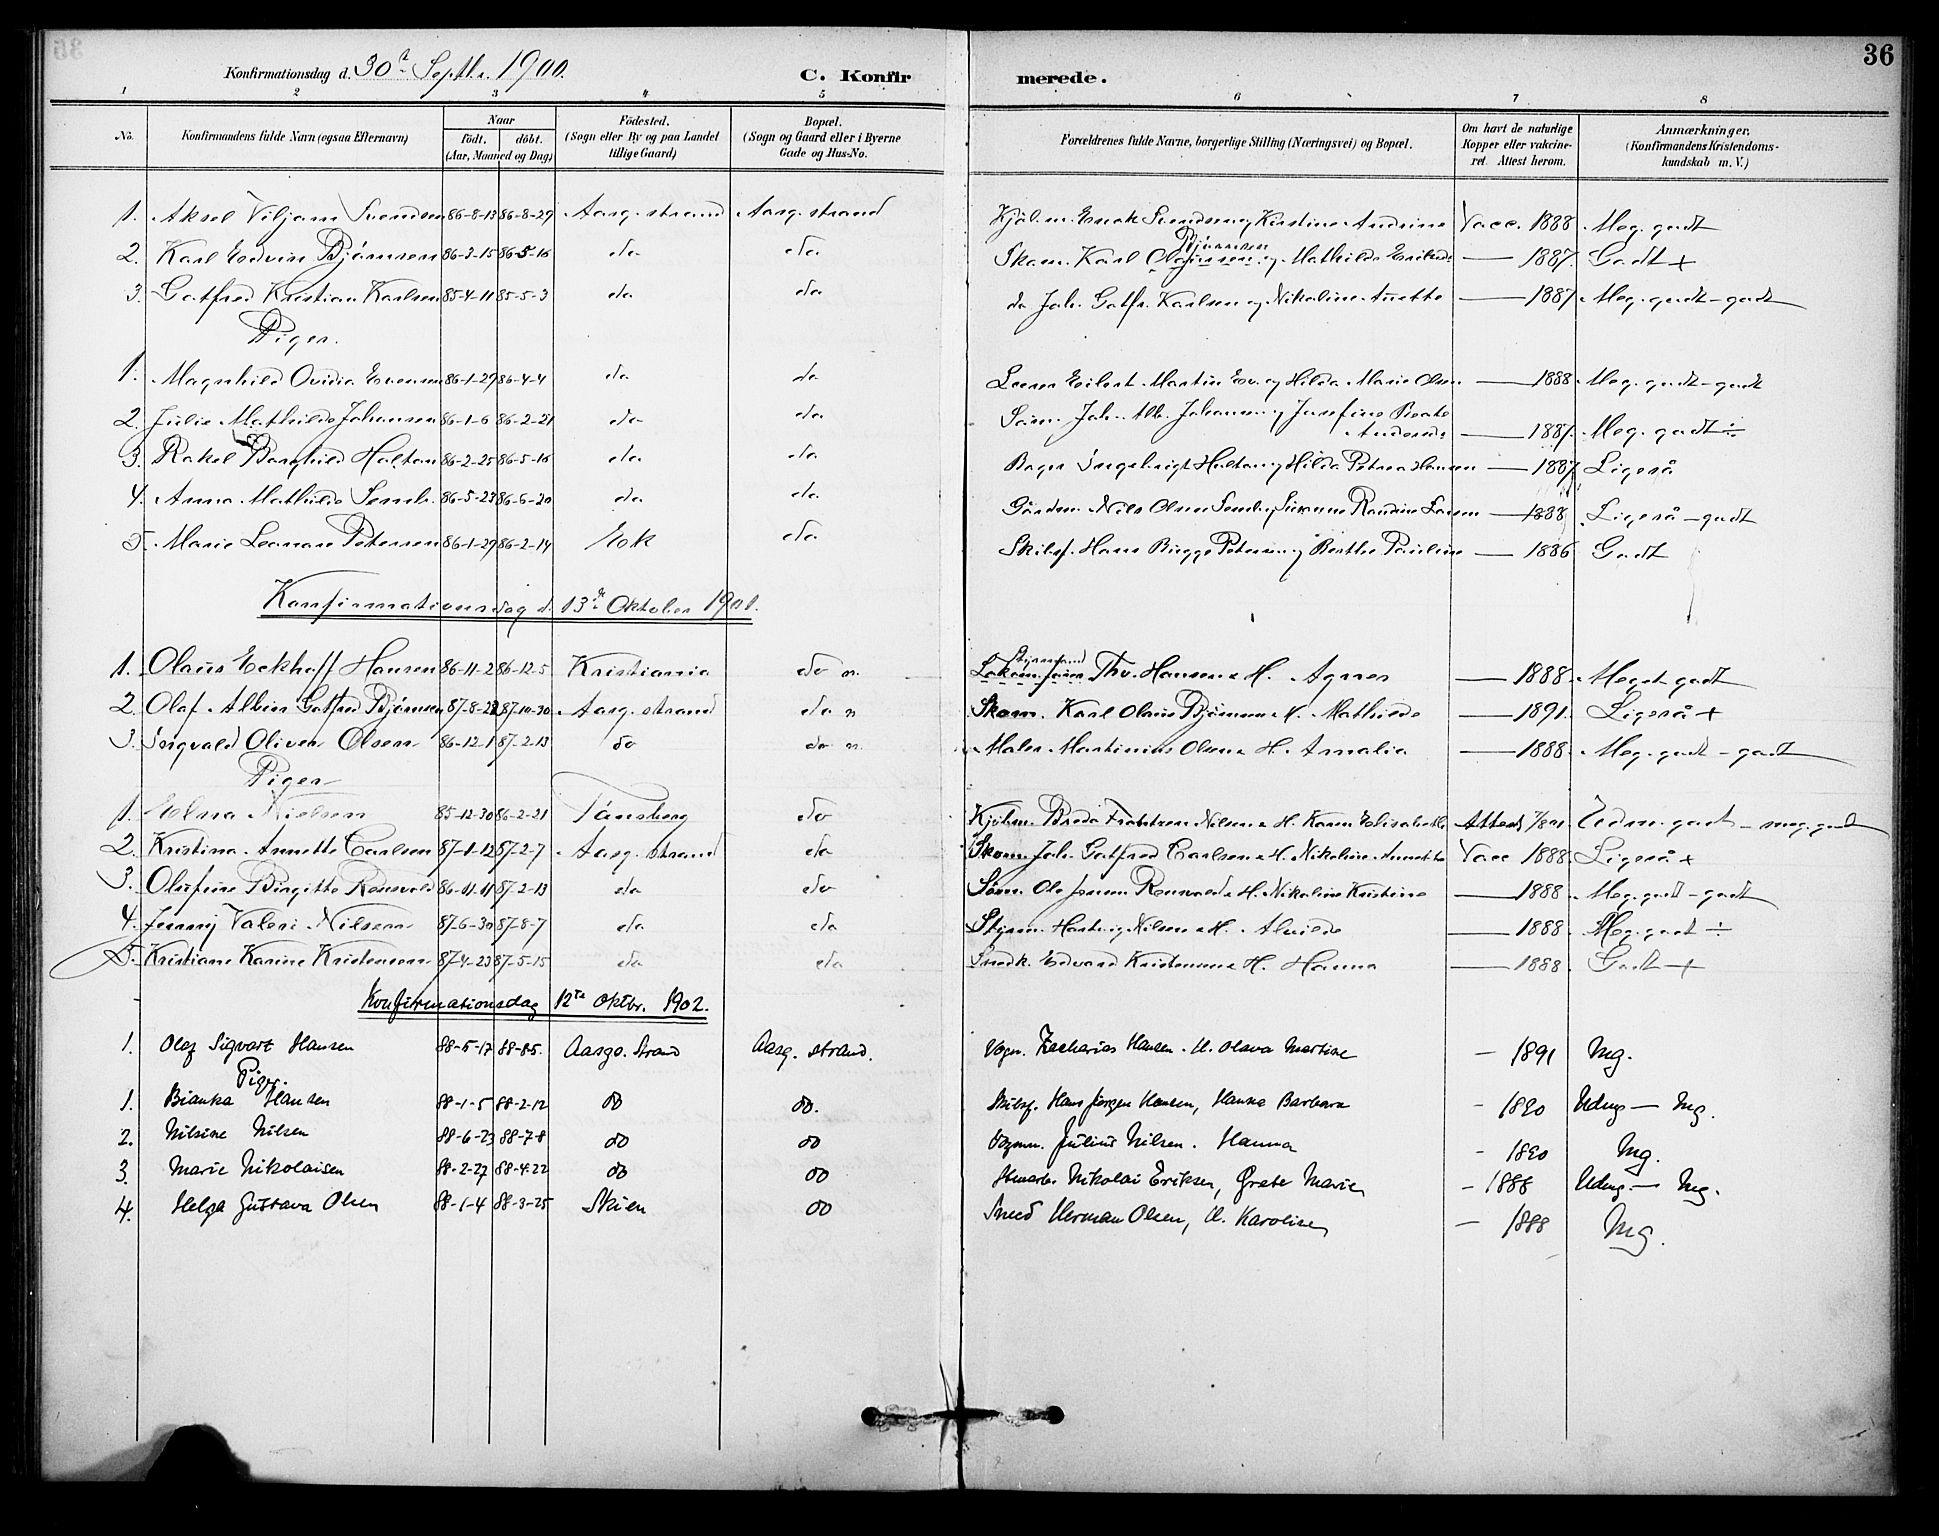 36
Konfirmationsdag d. 30te Septbr. 1900.
C. Konfirmerede.
1 2 3 4 5 6 7 8
No. Konfirmandens fulde Navn (ogsaa Efternavn) Naar født. døbt. (Aar, Maaned og Dag) Fødested. (Sogn eller By og paa Landet tillige Gaard) Bopæl. (Sogn og Gaard eller i Byerne Gade og Hus-No. Forældrenes fulde Navne, borgerlige Stilling (Næringsvei) og Bopæl. Om havt de naturlige Kopper eller vakcineret. Attest herom. Anmærkninger. (Konfirmandens Kristendomskundskab m. V.)
1. Aksel Viljam Svendsen 86-8-13 86-8-29 Aasg.strand Aasg.strand Svendsen og Kirstine Andrine Vacc. 1888 Meg. godt
2. Karl Edvin Bjørnsen 86-3-15 86-5-16 do do Skom. Karl Bjørnsen og Mathilde — 1887. Godt +
3. Gotfred Kristian Karlsen 85-4-11 85-5-3 do do do Joh. Gotfr. Karlsen og Nikoline Anette — 1887. Meg. godt - godt
Piger.
1. Magnhild Ovidia Evensen 86-1-29 86-4-4 do do Eilert Martin Ev. og Hilda Marie Olsen — 1888 Meg. godt - godt
2. Julie Mathilde Johansen 86-1-6 86-2-21 do do Søm. Joh. Alb. Johansen og Josefine Beate
Andersdr — 1887. Meg. godt ÷
3. Rakel Borghild Holtan 86-2-25 86-5-16 do do Bager Ingebrigt Holtan og Hilda Petrea Hansen — 1887 Ligeså
4. Anna Mathilde Semb. 86-5-23 86-6-20 do do Gårdm. Nils Olsen Semb og Susanne Randine Larsen — 1888 Ligeså - godt
5. Marie Leonore Petersen 86-1-29 86-2-14 Eok do Skibsf. Hans Bugge Petersen og Berthe Pauline — 1886 Godt
Konfirmationsdag d. 13de Oktober 1901.
1. Olaus Eckhoff Hansen 86-11-2 86-12-5 Kristiania do n. Thv. Hansen & H. Agnes — 1888. Meget godt
2. Olaf Albin Gotfred Bjørnsen 87-8-22 87-10-30 Aasg.strand do n Skom. Karl Olaus Bjørnsen & H. Mathilde — 1891. Ligeså +
3. Ingvald Oliver Olsen 86-12-1 87-2-13 do do n. Maler Martinius Olsen & H. Amalia — 1888. Meg. godt - godt
Piger
1. Elna Nielsen 85-12-30 86-2-21 Tønsberg do Kjøbm. Nilsen & H. Karen Elisabeth Attest Udm. godt - meg. godt
2. Kristina Annette Carlsen 87-1-12 87-2-7 Aasg.strand do Skom. Joh. Gotfred Carlsen & H. Nikoline Annette Vacc 1888. Ligeså +
3. Olufine Birgitte Rensvold 86-11-11 87-2-13 do do Søm. Ole Jensen Rensvold & H. Nikoline Kristine — 1888. Meg. godt - godt
4. Jenny Valeri Nilsen 87-6-30 87-8-7 do do Styrm. Hartvig Nilsen & H. Alvilde — 1888. Meg. godt ÷
5. Kristiane Karine Kristensen 87-4-23 87-5-15 do do Snedk. Edvard Kristensen & H. Hanna — 1888. Godt +
Konfirmationsdag 12te Oktbr. 1902.
1. Olaf Sigvart Hansen 88-5-17 88-8-5. Aasgo.Strand Aasg.strand. Vogn. Zacharias Hansen. H. Olava Martine — 1891 Mg.
Piger.
1. Bianka Hansen 88-1-5 88-2-12 do do. Skibsf. Hans Jørgen Hansen, Hanna Barbara - 1890 Udmg — Mg.
2. Nilsine Nilsen 88-6-23 88-7-8 do do Julius Nilsen. Hanna - 1890 Mg.
3. Marie Nikolaisen 88-2-27 88-4-22 do do Nikolai Eriksen, Grete Marie - 1888 Udmg — Mg.
4. Helga Gustava Olsen 88-1-4 88-3-25 Skien do Sned Herman Olsen, H. Karoline — 1888 Mg.